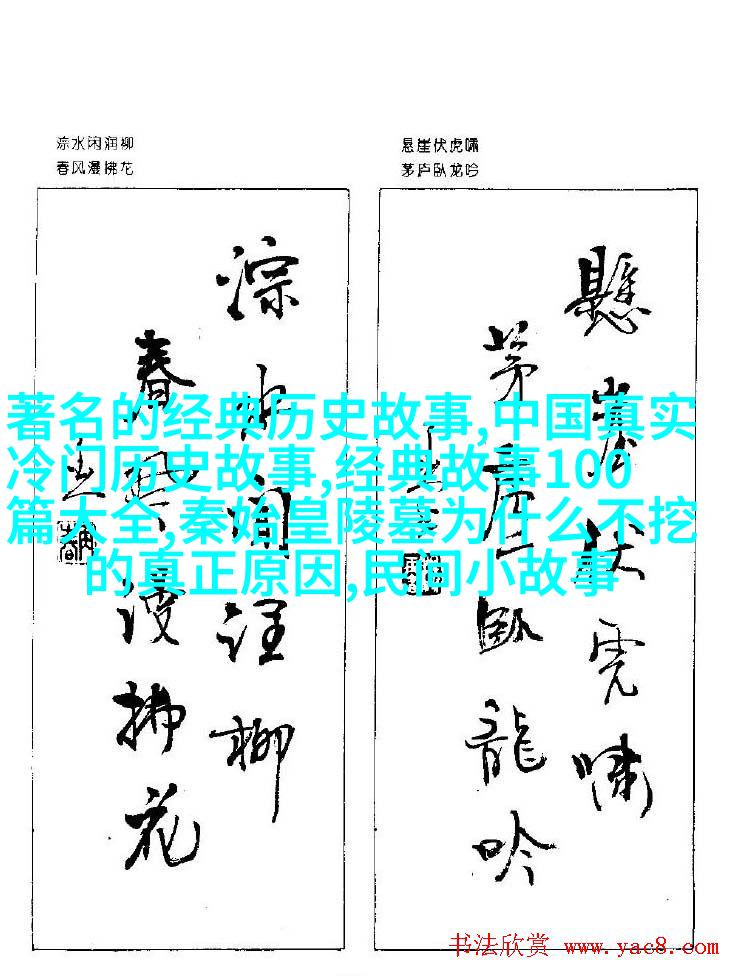 淙水闲润柳
春风漫拂花
悬崖伏虎啸
茅庐卧龙吟
淙水闲润柳
春风漫拂花
懸崖伏虎嘯
茅庐卧龍吟
著名的经典历史故事,中国真实
冷门历史故事,经典故事100
篇大全,秦始皇陵墓为什么不挖
的真正原因,民间小故事
书法欣赏 www.yac8.com